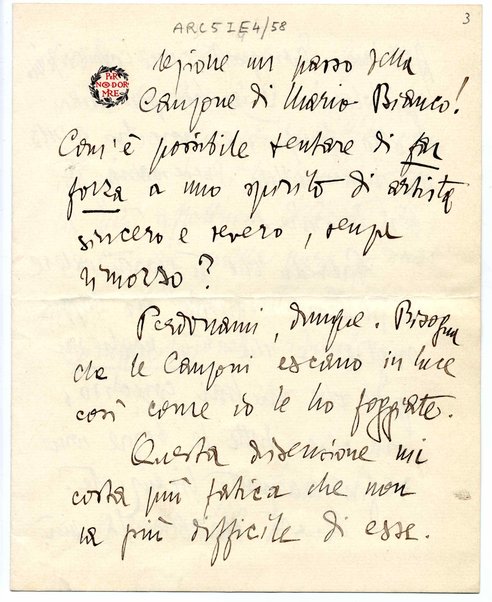 ARC5IE4/58
3
PER
NON DOR
MIRE
lezione un passo della
Canzone di Mario Bianco!
Com'è possibile tentare di far
forza a uno spirito di artista
sincero e severo, senza
rimorso?
Perdonami, dunque. Bisogna
che le Canzoni escano in luce
così come io le ho foggiate.
Questa dissensione mi
costa più fatica che non
la più difficile di esse.